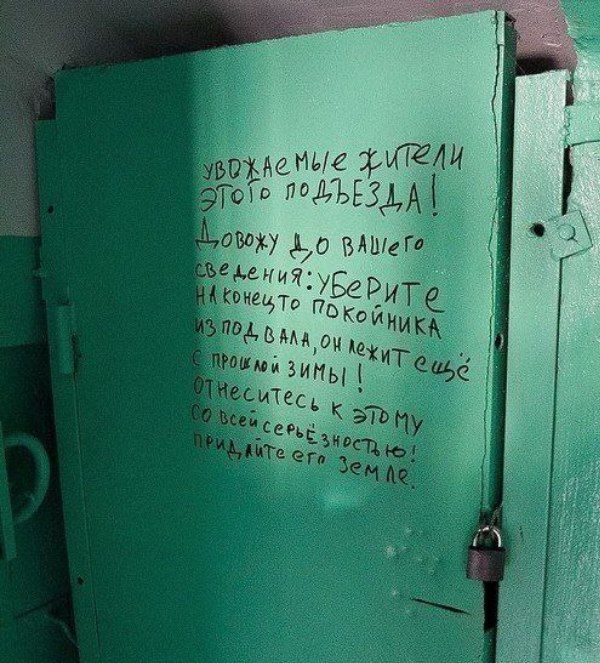 УВОЖАеМЫе ЖИТЕЛИ
ЭТОГО ПОДЪЕЗДА!
ДОВОЖУ ДО ВАШего
сведения: УБеРИТе
НАКОНЕЦТО ПОКОЙНИКА
ИЗ ПОДВАЛА, ОН лежИТ ещё
С ПРОШЛОЙ ЗИМЫ!
ОТНЕСИТЕСЬ К ЭТОМУ
СО ВСей сеРЬЁЗНОСТЬЮ!
ПРИДАЙТе его Земле.